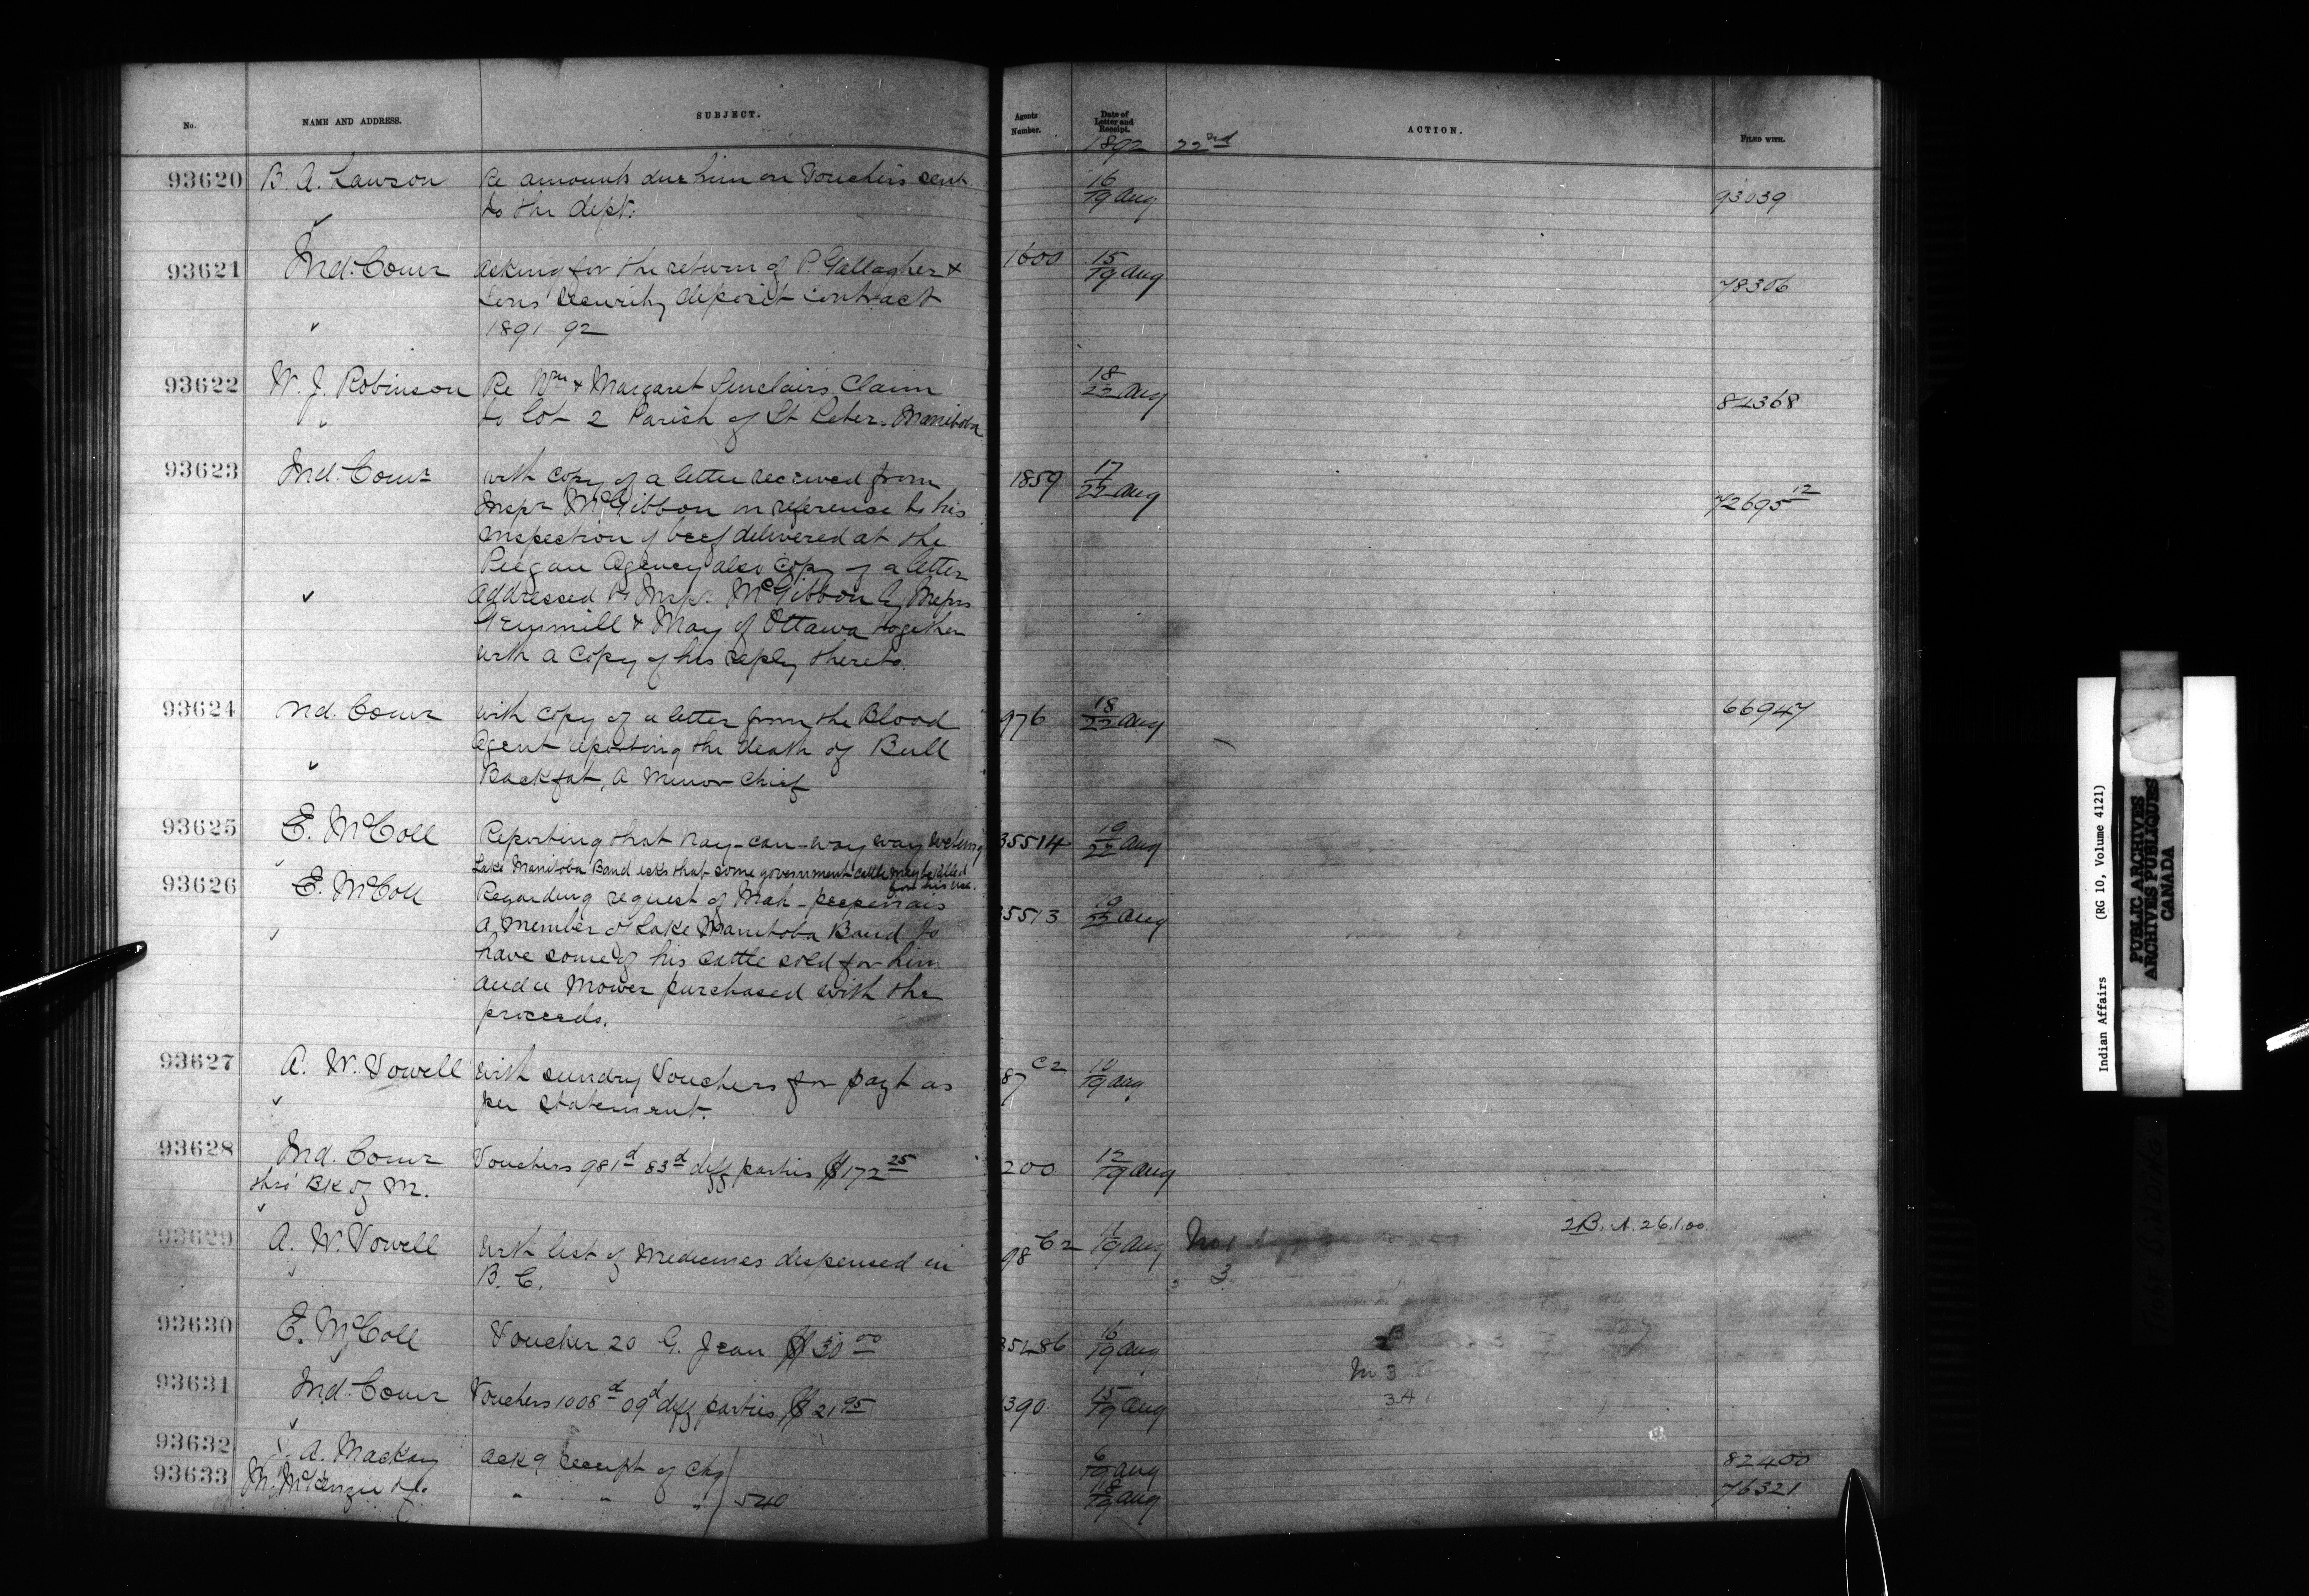 No. NAME AND ADDRESS. SUBJECT. Agents Number. Date of Letter and Receipt. ACTION. FILED WITH.
1892 22nd
93620 B. A. Lawson Re amounts due him on Vouchers sent 16/19 Aug 93039
to the dept.
93621 Ind. Comr asking for the return of P. Gallagher & 1600 15/19 Aug 78306
Sons security deposit contract
1891-92
93622 W. J. Robinson Re Wm & Margaret Sinclairs Claim 18/22 Aug 84368
to Lot 2 Parish of St Peter. Manitoba
93623 Ind. Comr with copy of a letter received from 1859 17/22 Aug 72695 12
Inspr McGibbon in reference to his
inspection of beef delivered at the
Piegan Agency also copy of a letter
addressed to Inspr. McGibbon by Messrs
Gemmill & May of Ottawa together
with a copy of his reply thereto.
93624 Ind. Comr with copy of a letter from the Blood 976 18/22 Aug 66947
Agent reporting the death of Bull
Backfat, a minor Chief
93625 E. McColl Reporting that Kay-can-way way 35514 19/22 Aug
Lake Manitoba Band asks that some government cattle may be killed
for his use.
93626 E. McColl Regarding request of Mah-peepenais 5513 19/22 Aug
a member of Lake Manitoba Band to
have some of his cattle sold for him
and a mower purchased with the
proceeds.
93627 A. W. Vowell with sundry Vouchers for payt as 87 C2 10/19 Aug
per statement.
93628 Ind. Comr Vouchers 981d 83d diff parties $172 25 200 12/19 Aug
thro' Bk of M.
93629 A. W. Vowell With list of medicines dispensed in 98 C2 19 Aug No 1 2B. A. 26.1.00.
B. C. " 3.
93630 E. McColl Voucher 20 G. Jean $30 00 35486 16/19 Aug
2B
M 3
93631 Ind. Comr Vouchers 1008d 09d diff parties $21 95 390 15/19 Aug 3A
93632 A. Mackay ackg receipt of chq 6/19 Aug 82400
93633 M. McKenzie " " " 540 18/19 Aug 76321
Indian Affairs (RG 10, Volume 4121)
PUBLIC ARCHIVES
ARCHIVES PUBLIQUES
CANADA